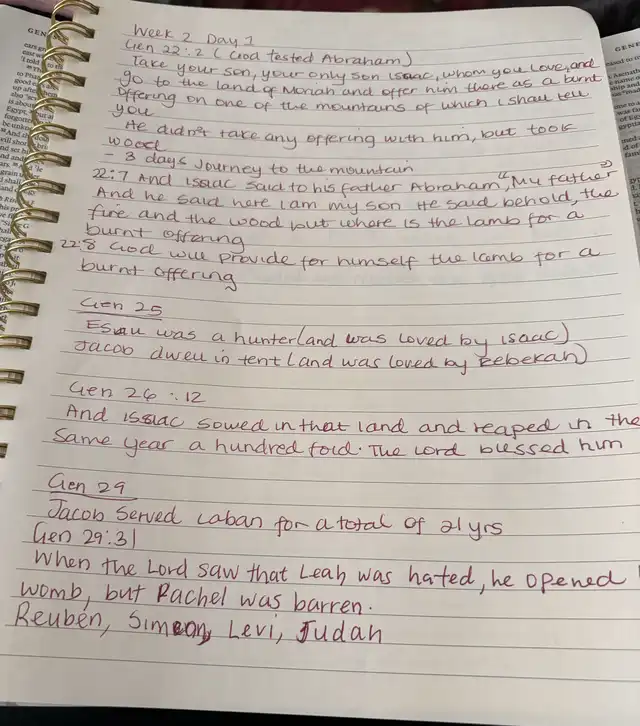 Week 2 Day 1
Gen 22:2 (God tested Abraham)
Take your son, your only son Isaac, whom you love, and
go to the land of Moriah and offer him there as a burnt
offering on one of the mountains of which I shall tell
you
He didn't take any offering with him, but took
wood
- 3 days journey to the mountain
22:7 And Isaac said to his father Abraham, "My father"
And he said here I am my son He said behold, the
fire and the wood but where is the lamb for a
burnt offering
22:8 God will provide for himself the lamb for a
burnt offering
Gen 25
Esau was a hunter (and was loved by Isaac)
Jacob dwell in tent (and was loved by Rebekah)
Gen 26:12
And Issiac sowed in that land and reaped in the
same year a hundred fold. The Lord blessed him
Gen 29
Jacob served Laban for a total of 21 yrs
Gen 29:31
When the Lord saw that Leah was hated, he opened
womb, but Rachel was barren.
Reuben, Simeon, Levi, Judah